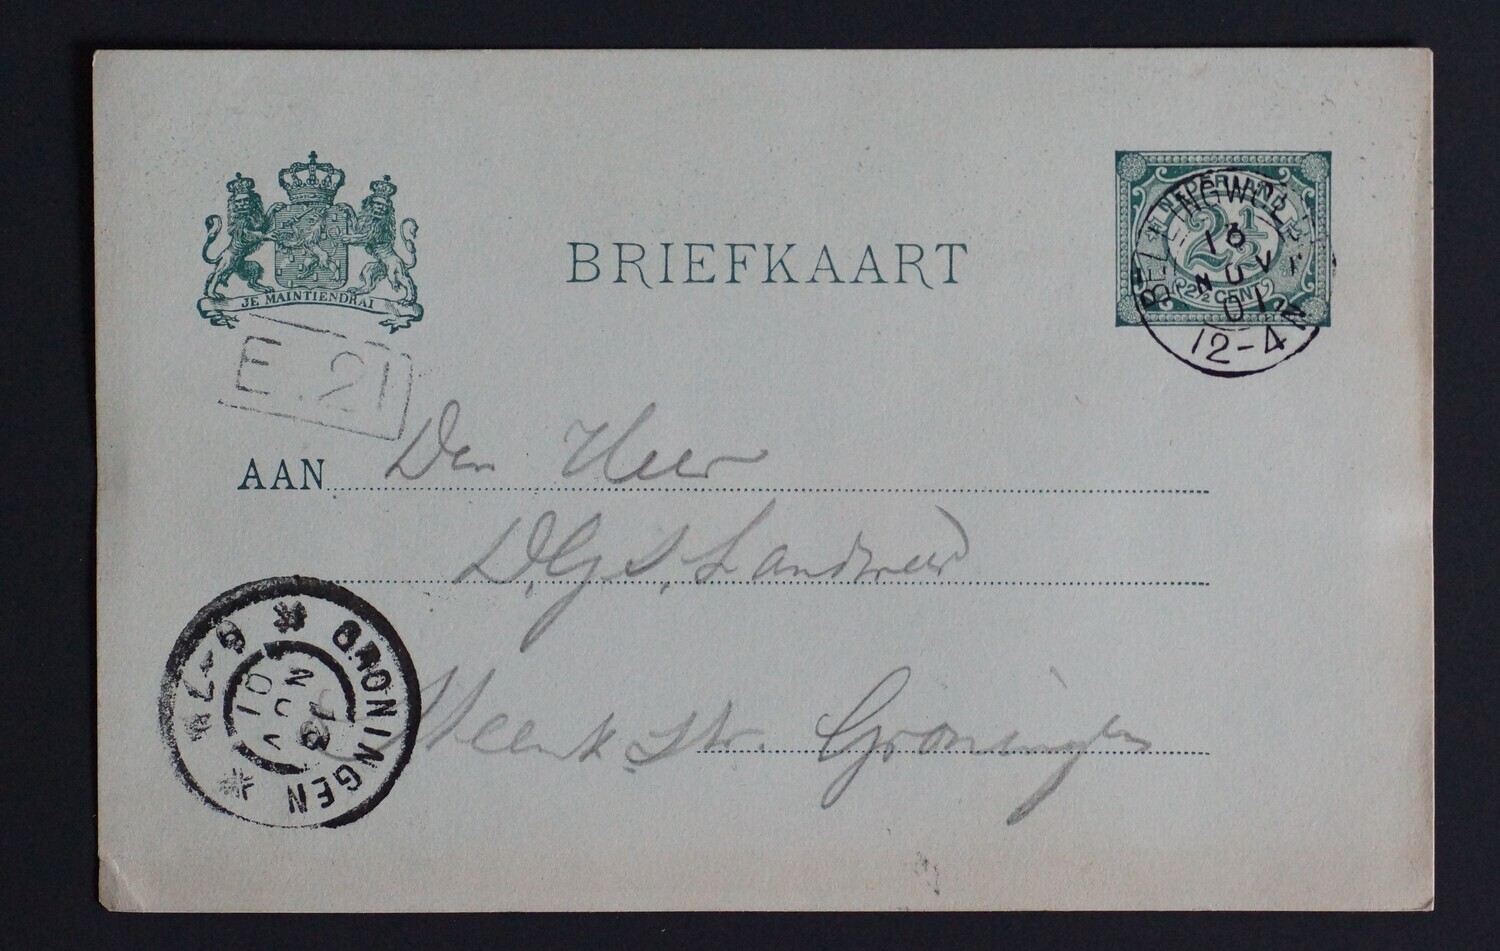 JE MAINTIENDRAI
BRIEFKAART
NEDERLAND
2½
(2½ CENT)
BELLINGWOLDE
13
NOV
01
12-4N
E. 21
AAN Den Heer
D. G. S. Landweer
str. Groningen
GRONINGEN
13
NOV
01
6-7N